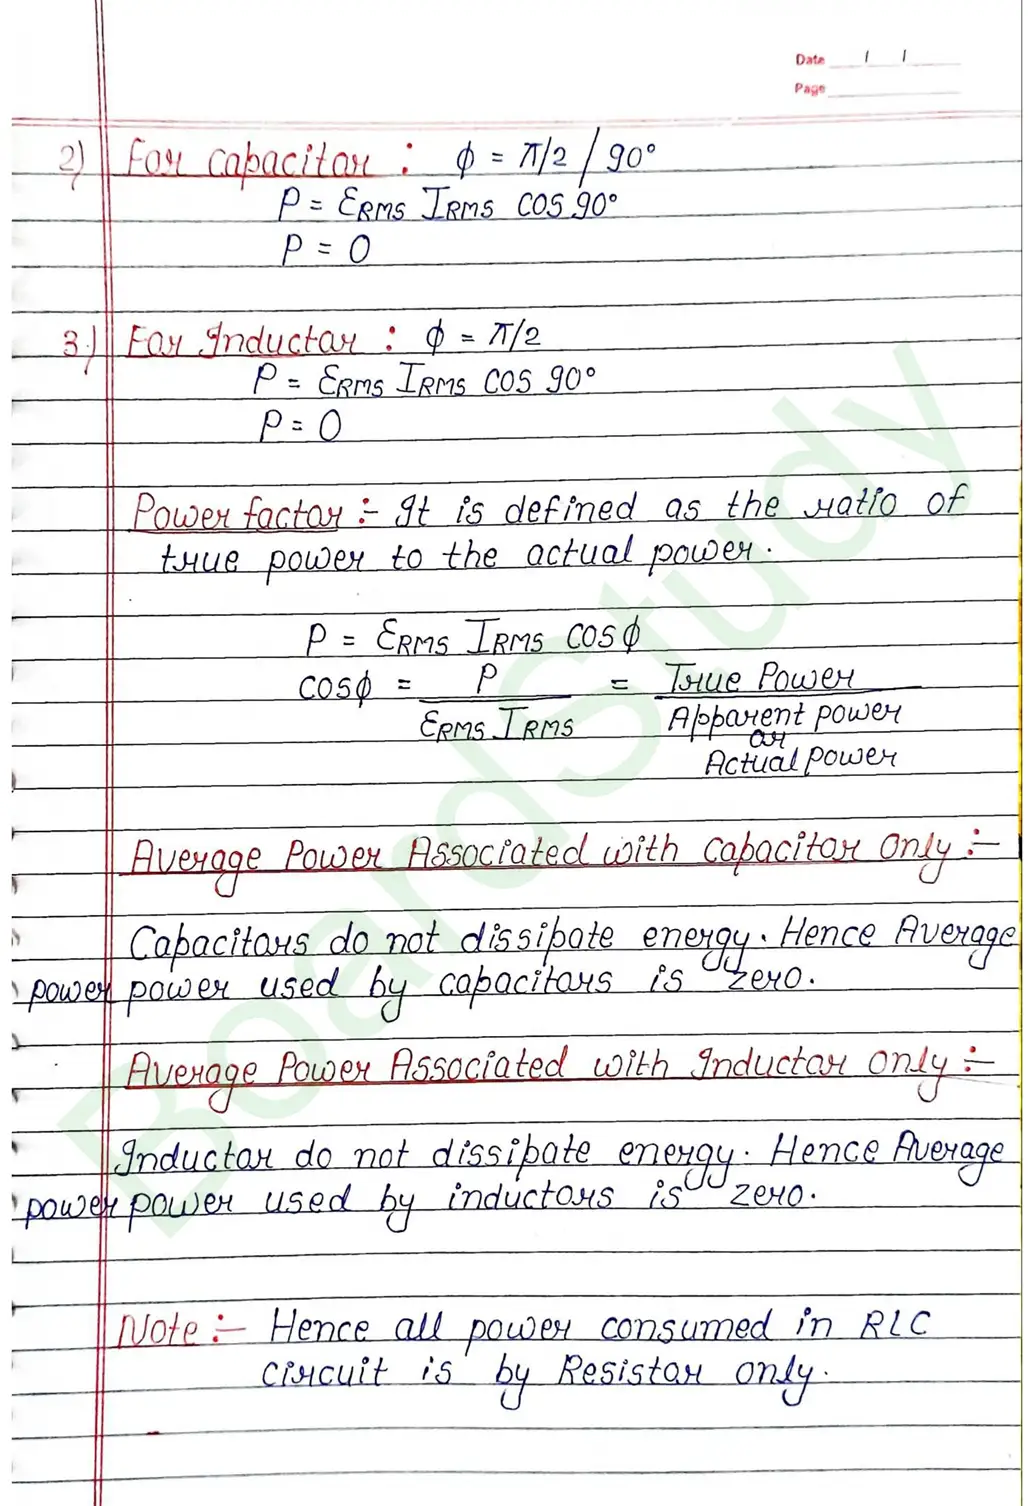 Date / /
Page
2) For capacitor : ϕ = π/2 / 90°
P = ℰRMS IRMS COS 90°
P = 0
3.) For Inductor : ϕ = π/2
P = ℰRMS IRMS COS 90°
P = 0
Power factor :- It is defined as the ratio of
true power to the actual power.
P = ℰRMS IRMS COSϕ
COSϕ = P / ℰRMS IRMS = True Power / Apparent power
or
Actual power
Average Power Associated with capacitor only :-
Capacitors do not dissipate energy. Hence Average
power power used by capacitors is zero.
Average Power Associated with Inductor only :-
Inductor do not dissipate energy. Hence Average
power power used by inductors is zero.
Note :- Hence all power consumed in RLC
circuit is by Resistor only.
BoardStudy